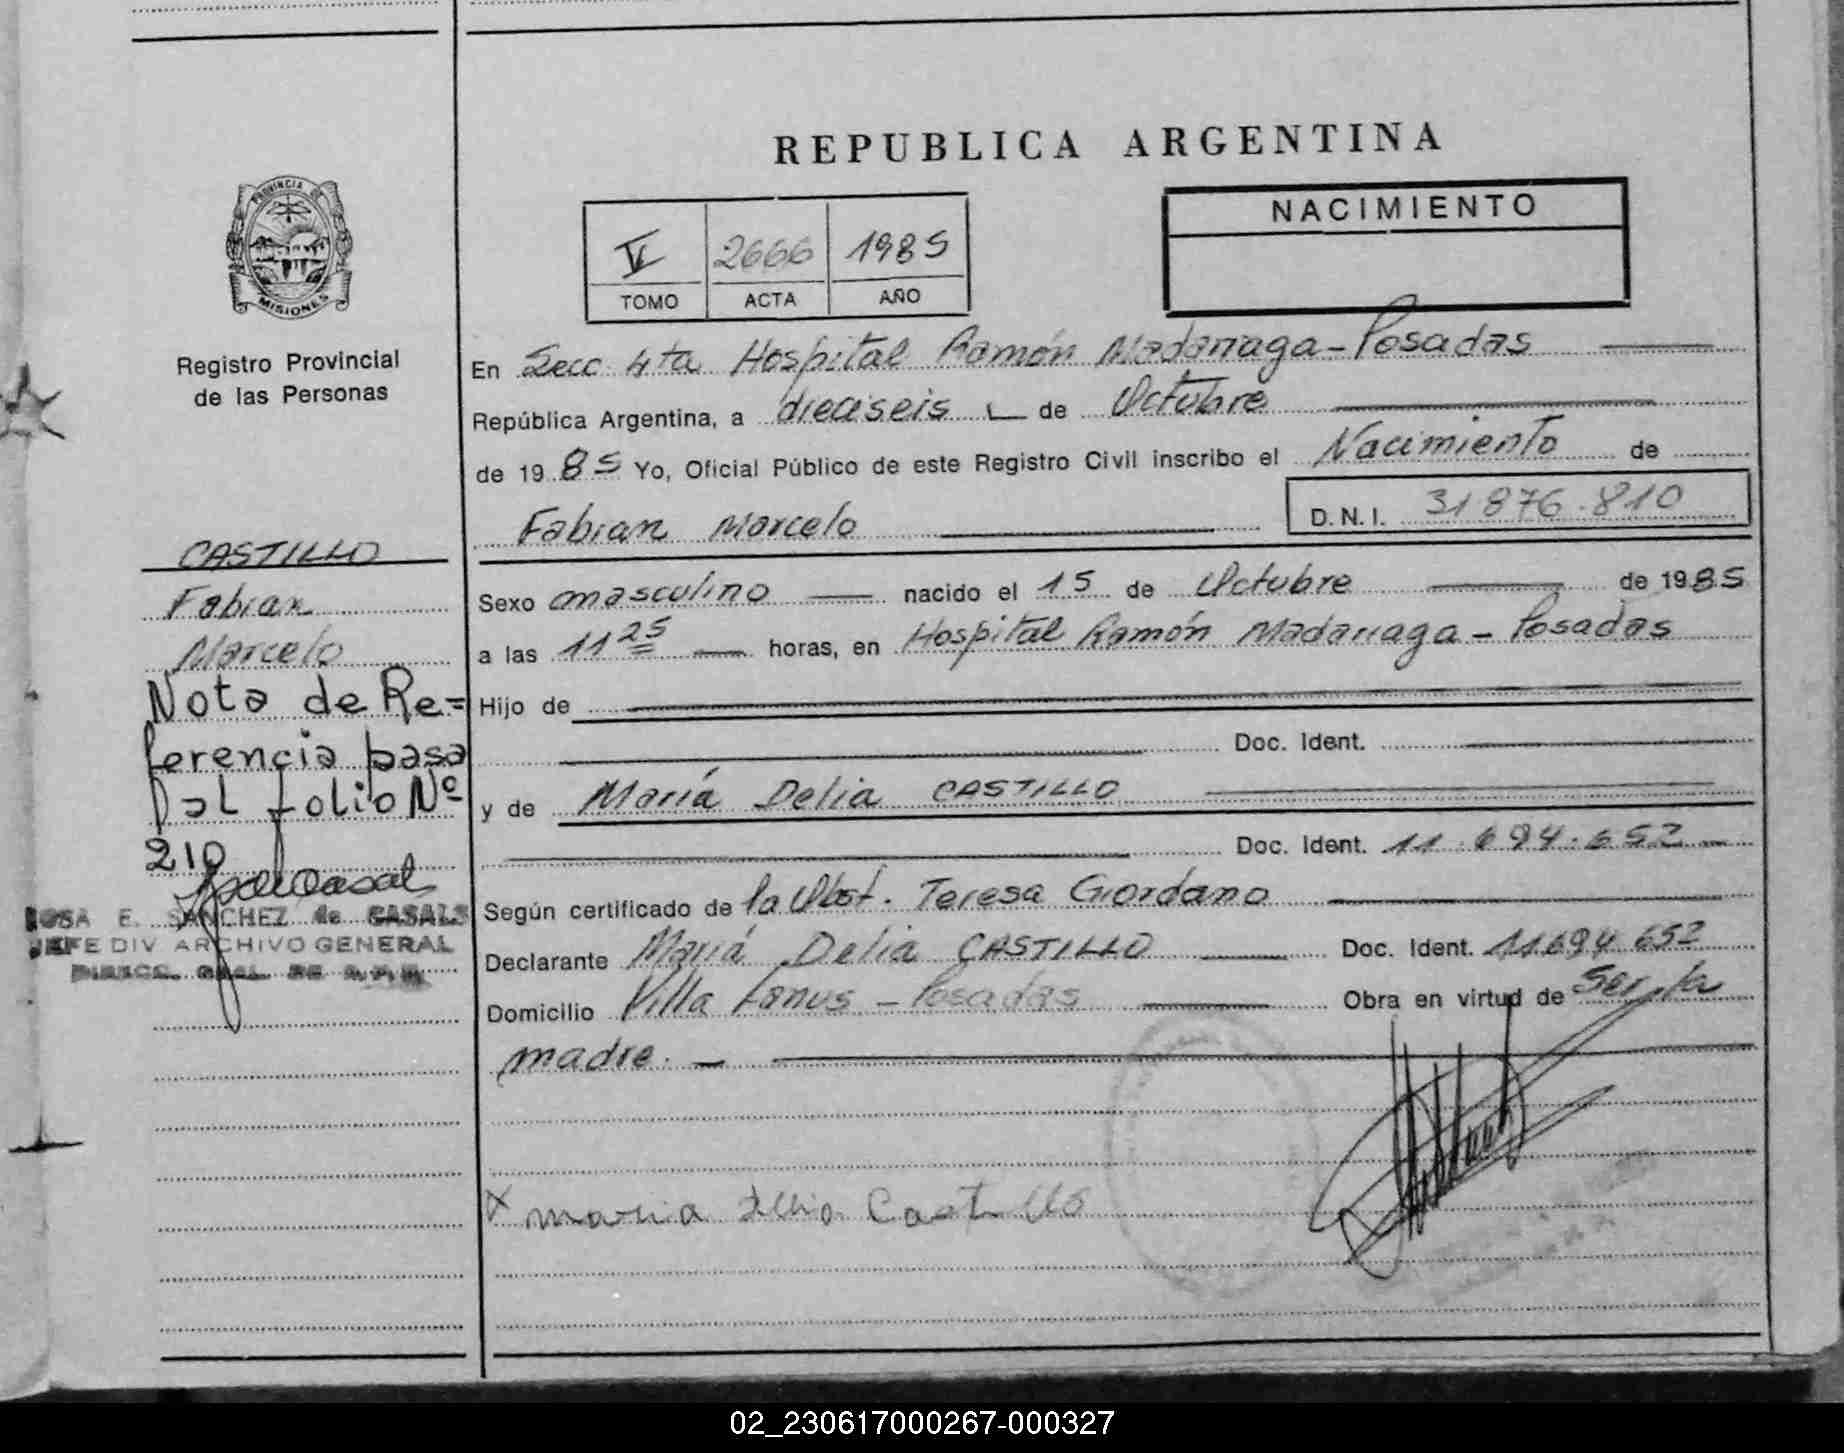 REPUBLICA ARGENTINA
PROVINCIA DE
MISIONES
Registro Provincial
de las Personas
2666 1985
TOMO ACTA AÑO
NACIMIENTO
En Secc 4ta Hospital Ramón Madariaga - Posadas
República Argentina, a dieciseis de Octubre
de 1985 Yo, Oficial Público de este Registro Civil inscribo el Nacimiento de
Fabian Marcelo D.N.I. 31.876.810
CASTILLO
Fabian
Marcelo
Nota de Re=
ferencia pasa
al folio Nº
210
ROSA E. SANCHEZ de CASALS
JEFE DIV ARCHIVO GENERAL
Sexo masculino nacido el 15 de Octubre de 1985
a las 11 25 horas, en Hospital Ramón Madariaga - Posadas
Hijo de
Doc. Ident.
y de María Delia CASTILLO
Doc. Ident. 11.694.652
Según certificado de la Obst. Teresa Giordano
Declarante María Delia CASTILLO Doc. Ident. 11694652
Domicilio Villa Lanus - Posadas Obra en virtud de Ser la
madre. -
x maria delia Castillo
02_230617000267-000327